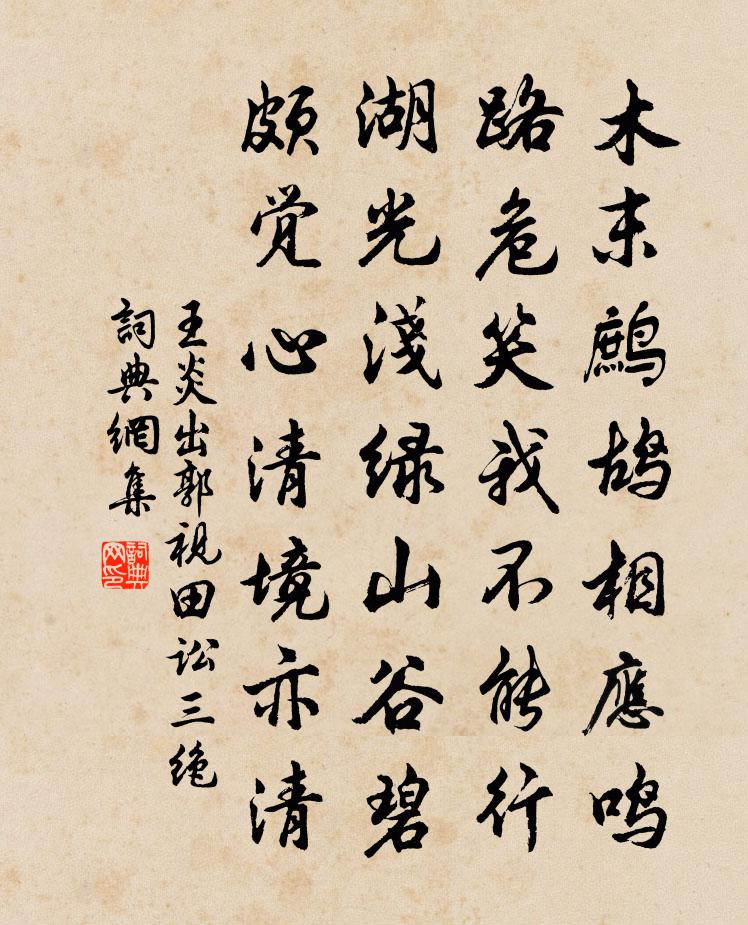 木末鹧鸪相應鸣
路危笑我不能行
湖光淺绿山谷碧
頗觉心清境亦清
王炎出郭視田讼三绝
詞典網集
詞典网印